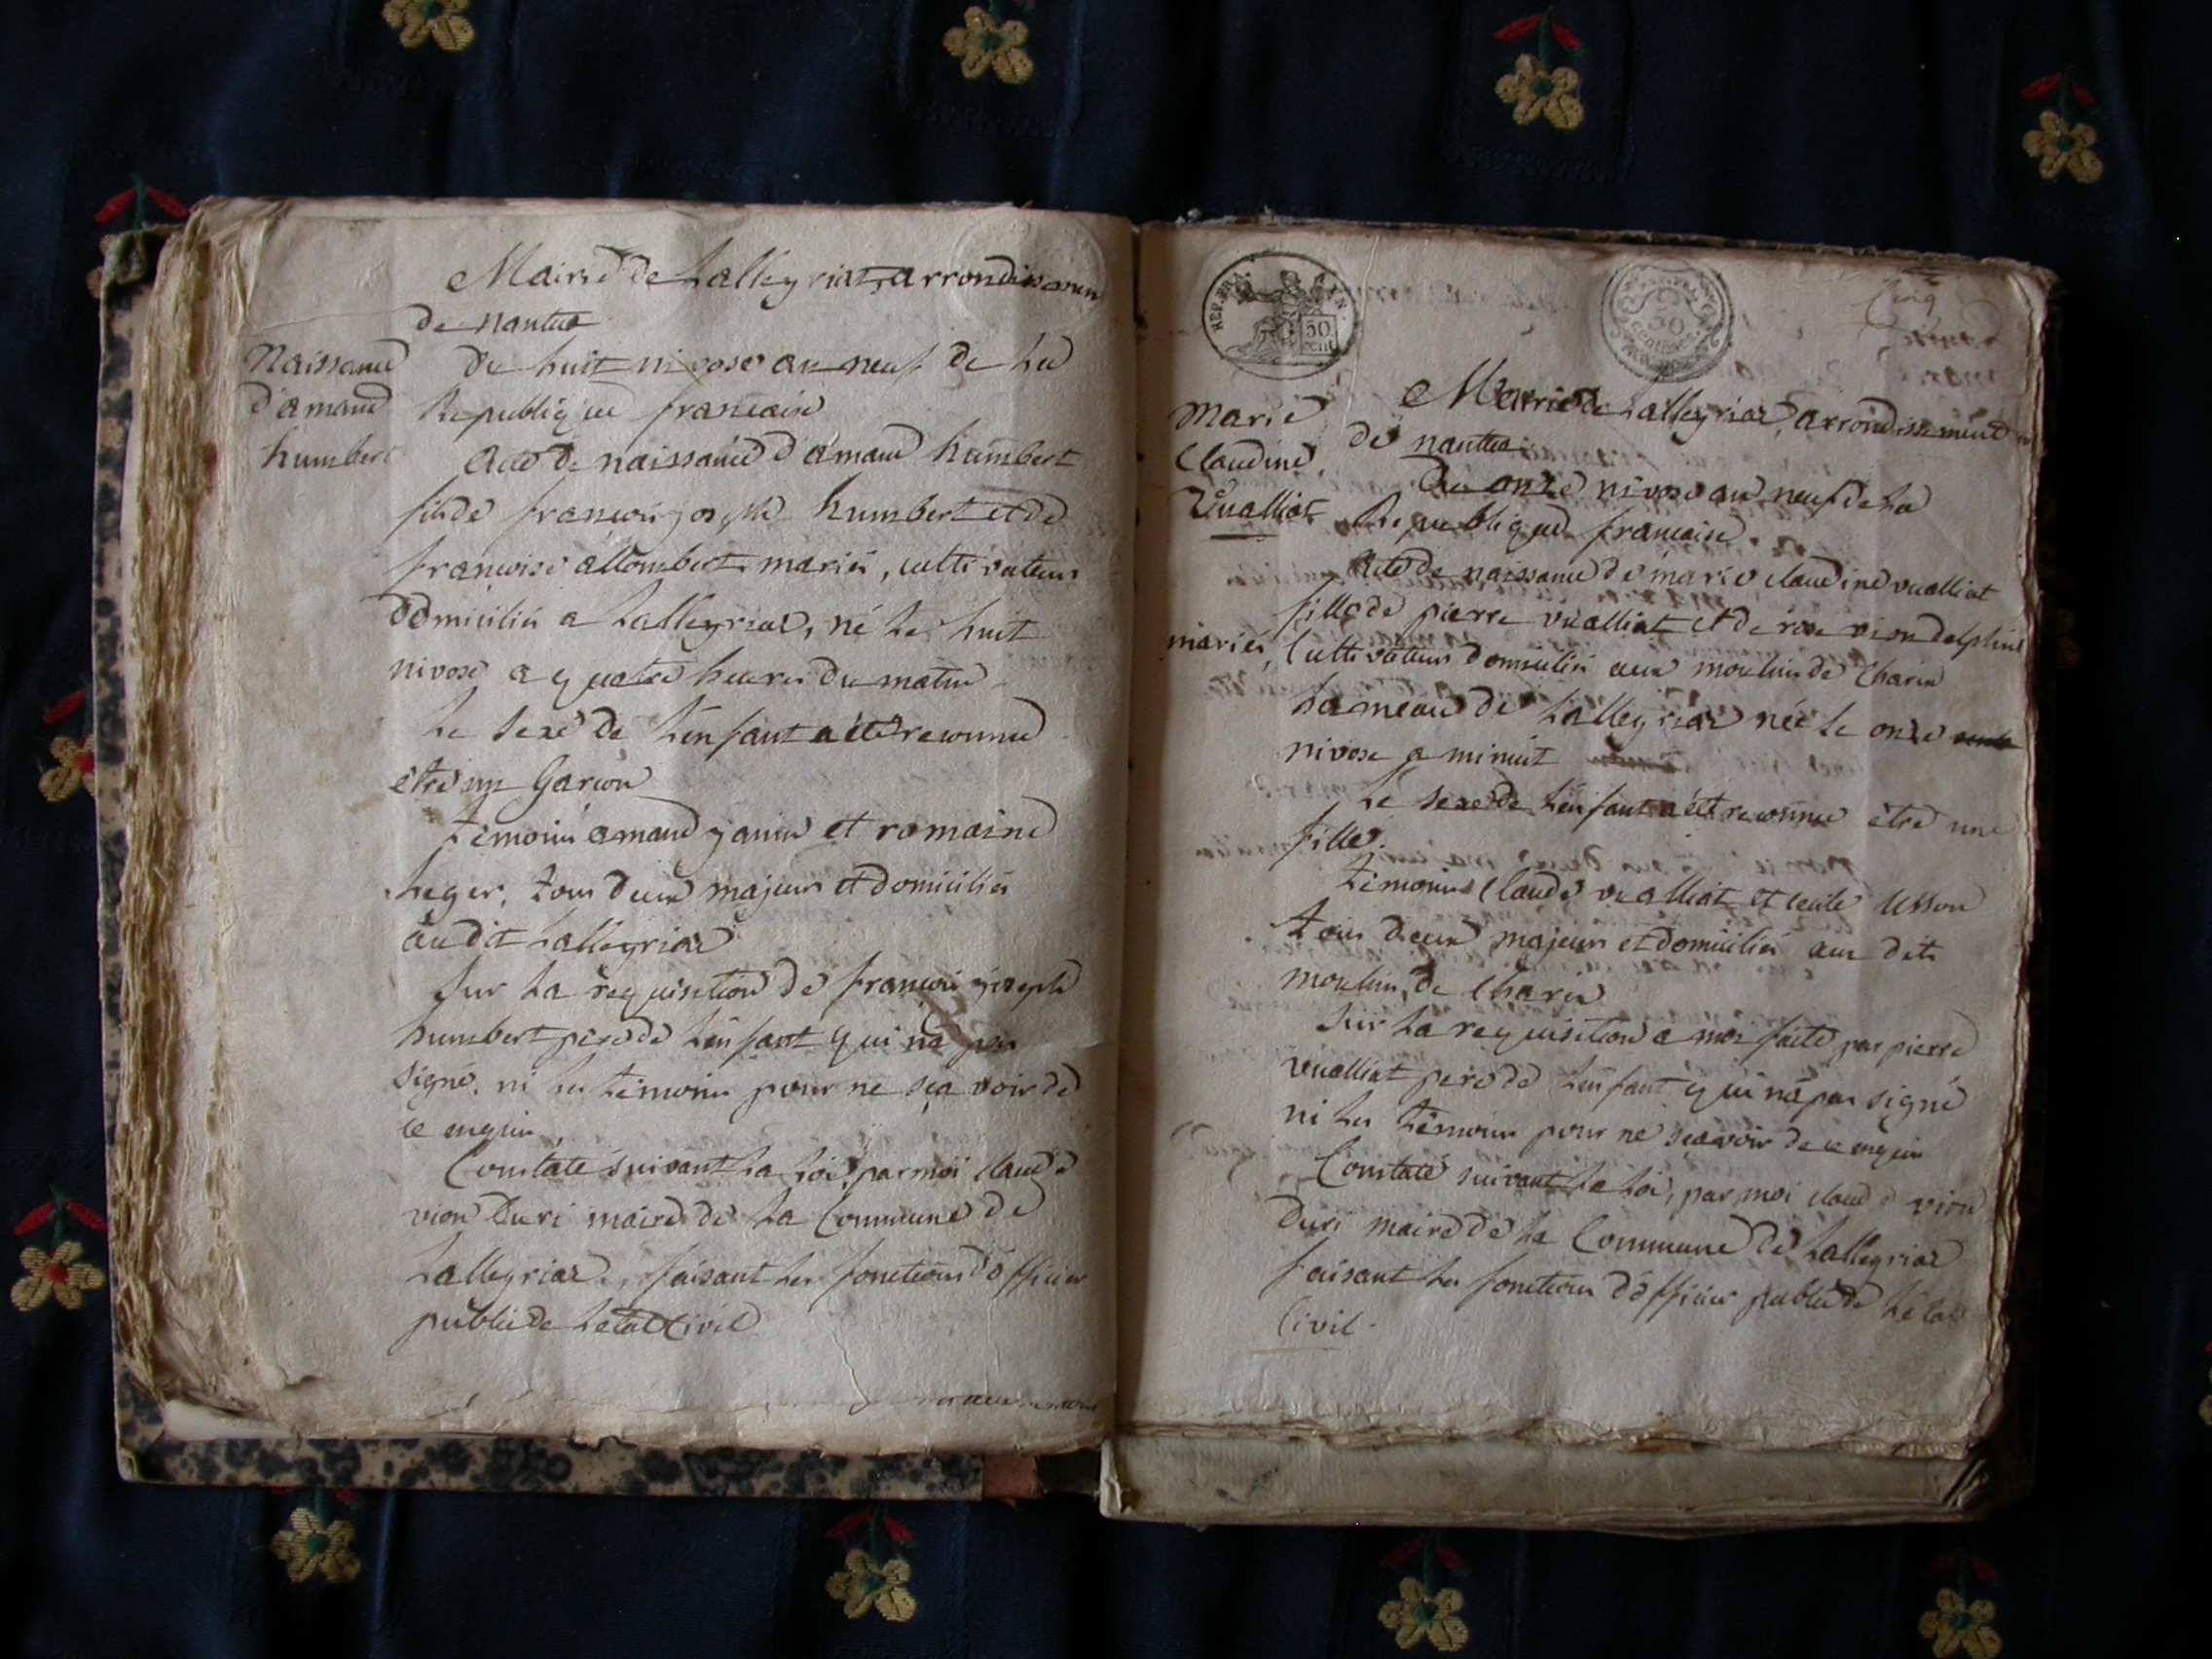 Mairie de Lalleyriat, arrondissemen
de nantua
Naissance
d'amand
humbert
Du huit nivose an neuf de La
Republique francaise
Acte de naissance d'amand humbert
fils de francois joseph humbert et de
francoise allombert mariés, cultivateurs
domiciliés a Lalleyriat, né Le huit
nivose a quatre heures du matin
Le sexe de L'enfant a été reconnu
être un Garcon
témoins amand janin et romaine
Leger, tous deux majeurs et domiciliés
audit Lalleyriat
Sur La requisition de francois joseph
humbert pere de L'enfant qui n'a pas
signé, ni Les témoins pour ne sçavoir de
ce enquis
Constaté suivant La Loi, par moi claude
vion Duri maire de La Commune de
Lalleyriat, faisant Les fonctions d'officier
public de L'etat Civil
REP. FRA.
50
cent
50
Centimes
Cinq
Marie
Claudine
Vualliat
Mairie de Lalleyriat, arrondissement
de nantua
Du onze nivose an neuf de La
Republique francaise
Acte de naissance de marie claudine vualliat
fille de pierre vualliat et de rose vion delphine
mariés, Cultivateurs domiciliés aux moulins de Charix
hameau de Lalleyriat née Le onze
nivose a minuit
Le sexe de L'enfant a été reconnu être une
fille.
témoins Claude vualliat et
tous deux majeurs et domiciliés aux dits
moulins de Charix
Sur La requisition a moi faite par pierre
vualliat pere de L'enfant qui n'a pas signé
ni Les témoins pour ne sçavoir de ce enquis
Constaté suivant La Loi, par moi claude vion
Duri maire de La Commune de Lalleyriat
faisant Les fonctions d'officier public de L'état
Civil.